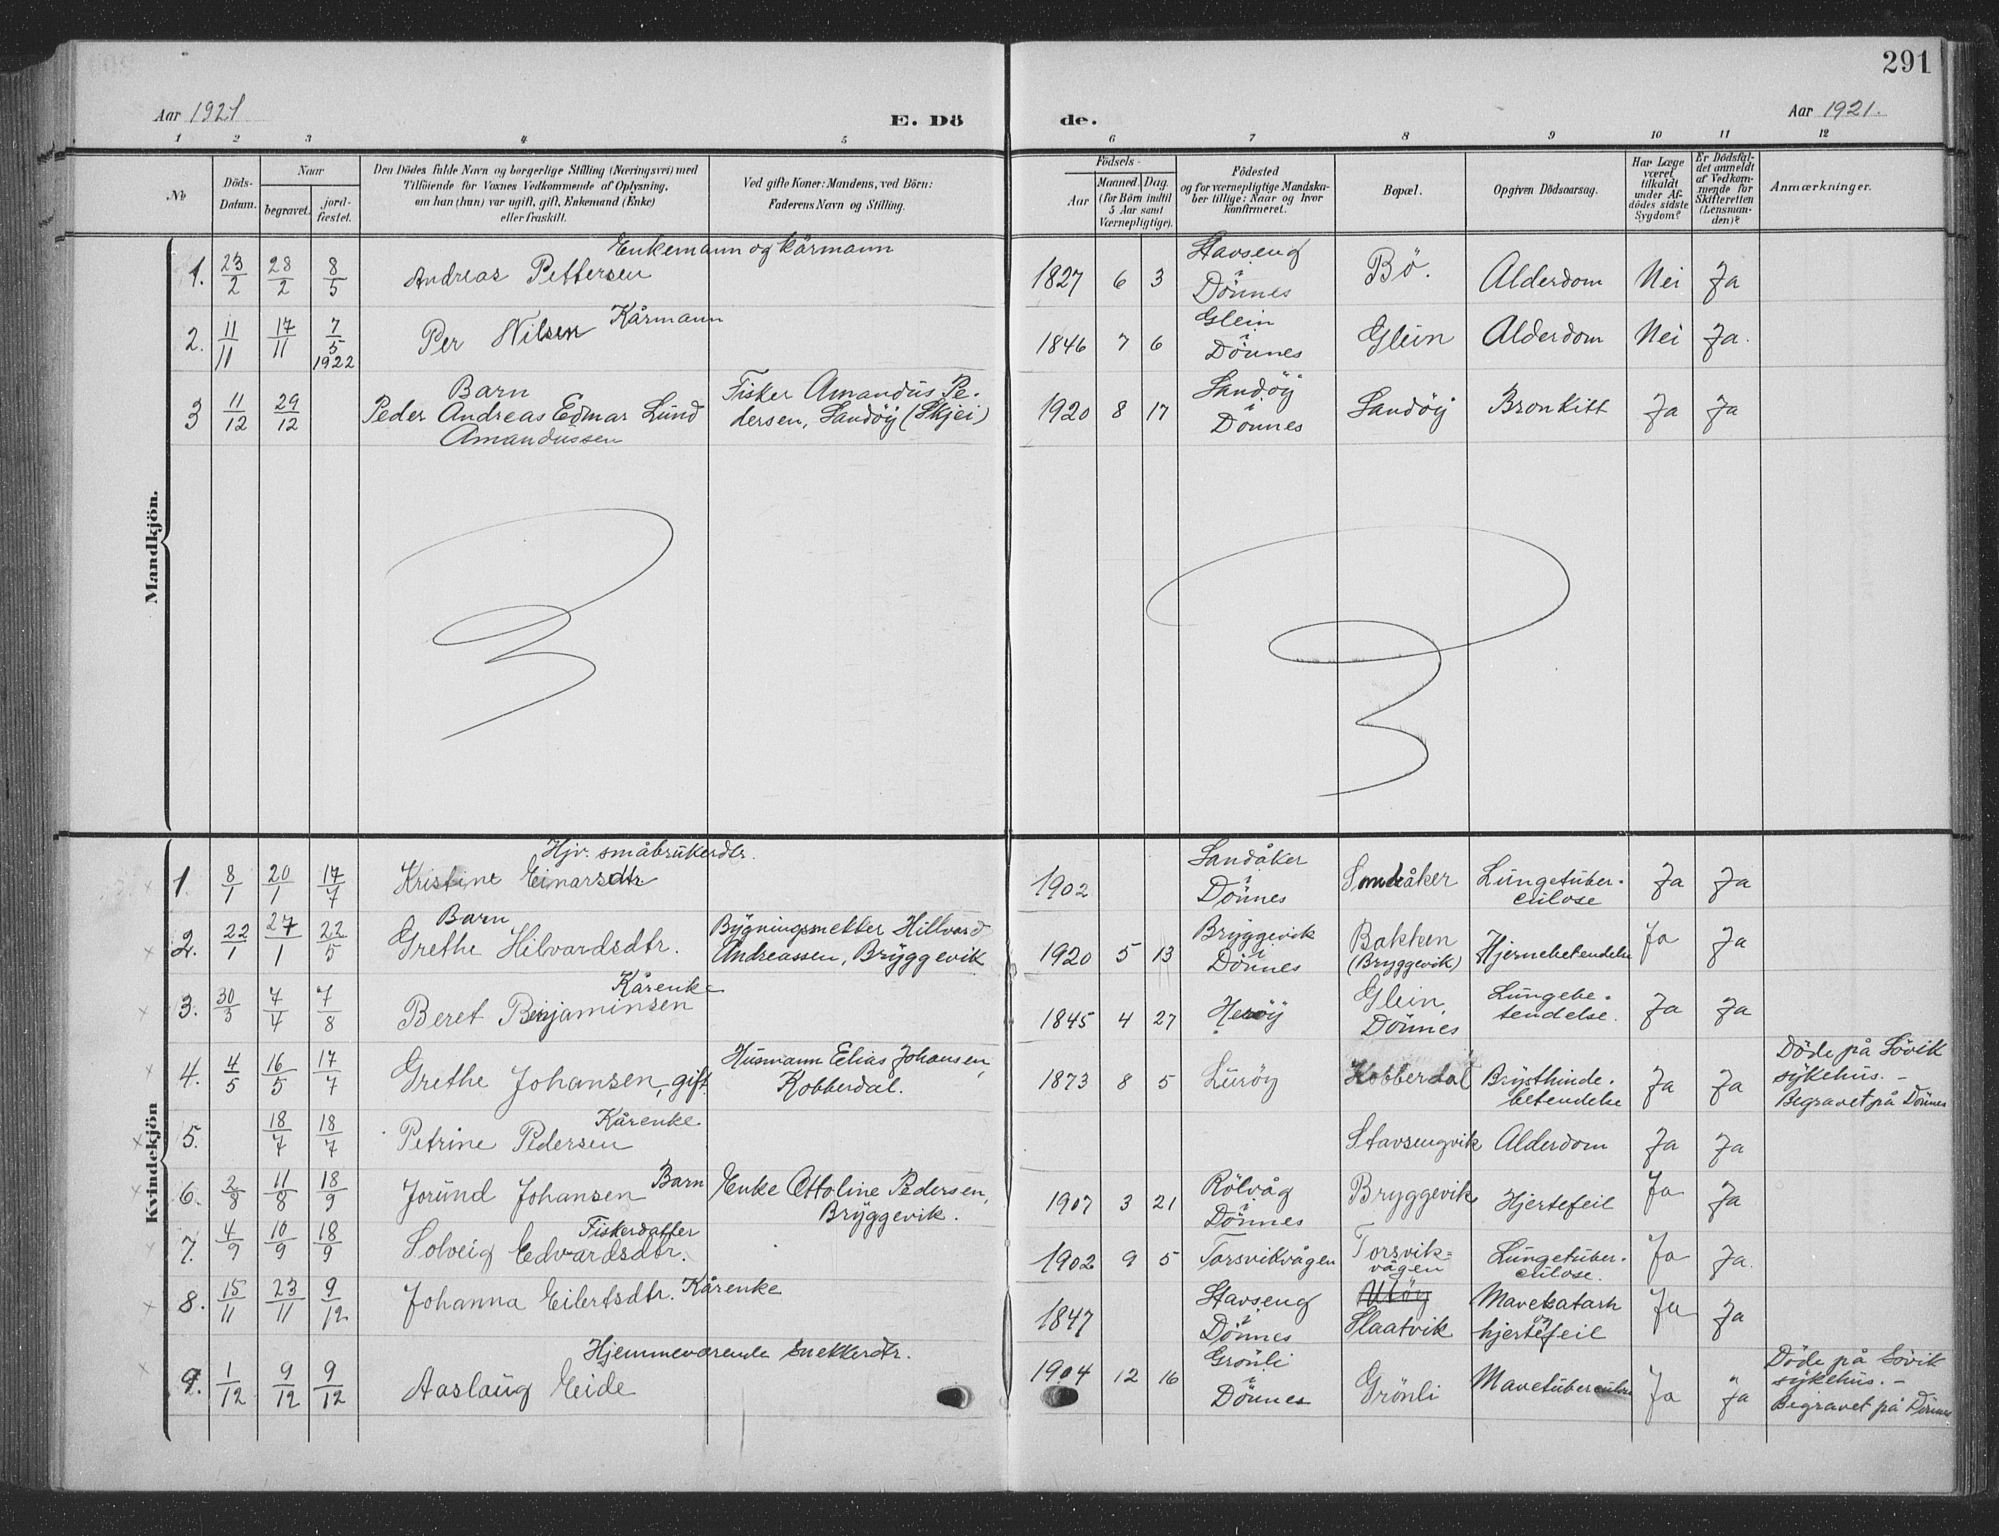 291
Aar 1921
E. Dö
de.
Aar 1921.
1 2 3 4 5 6 7 8 9 10 11 12
No
Döds-
Datum.
Naar
begravet.
jord-
fæstet.
Den Dödes fulde Navn og borgerlige Stilling (Næringsvei) med
Tilföiende for Voxnes Vedkommende af Oplysning,
om han (hun) var ugift, gift, Enkemand (Enke)
eller fraskilt.
Ved gifte Koner: Mandens, ved Börn:
Faderens Navn og Stilling.
Födsels-
Aar
Maaned. Dag.
(for Börn indtil
5 Aar samt
Værnepligtige).
Födested
og for værnepligtige Mandska-
ber tillige: Naar og hvor
konfirmeret.
Bopæl.
Opgiven Dödsaarsag.
Har Læge
været
tilkaldt
under Af-
dödes sidste
Sygdom?
Er Dödsfal-
det anmeldt
af Vedkom-
mende for
Skifteretten
(Lensman-
den)?
Anmærkninger.
Mandkjön.
Enkemann og kårmann
1. 23/2 28/2 8/5 Andreas Pettersen 1827 6 3 Stavseng i Dönnes Bö. Alderdom Nei Ja
Kårmann
2. 11/11 17/11 7/5 1922 Per Nilsen 1846 7 6 Glein i Dönnes Glein Alderdom Nei Ja.
Barn
3 11/12 29/12 Peder Andreas Edmar Lund Amandussen Fisker Amandus Pe-
dersen, Sandöy (Skjei) 1920 8 17 Sandöy i Dönnes Sandöy Bronkitt Ja Ja
Kvindekjön
Hjv. småbrukerdtr.
1. 8/1 20/1 17/7 Kristine Einarsdtr 1902 Sandåker i Dönnes Sandåker Lungetuber-
culose Ja Ja
Barn
2. 22/1 27/1 22/5 Grethe Hilvardsdtr. Bygningssnekker Hillvard
Andreassen, Bryggevik 1920 5 13 Bryggevik i Dönnes Bakken
(Bryggevik) Hjernebetendelse Ja Ja
Kårenke
3. 30/3 7/4 7/8 Beret Benjaminsen 1845 4 27 Heröy Glein,
Dönnes Lungebe-
tendelse. Ja Ja
4. 4/5 16/5 17/7 Grethe Johansen, gift Husmann Elias Johansen,
Kobberdal. 1873 8 5 Luröy Kobberdal Brysthinde-
betendelse Ja Ja Döde på Sövik
sykehus. –
Begravet på Dönnes
Kårenke
5. 18/7 18/7 Petrine Pedersen Stavsengvik Alderdom Ja Ja
6. 2/8 11/8 18/9 Jorund Johansen Barn Enke Ottoline Pedersen,
Bryggevik. 1907 3 21 Rölvåg i Dönnes Bryggevik Hjertefeil Ja Ja
Fiskerdatter
7. 4/9 10/9 18/9 Solveig Edvardsdtr. 1902 9 5 Torsvikvågen Torsvik-
vågen Lungetuber-
culose. Ja Ja.
8. 15/11 23/11 9/12 Johanna Eilertsdtr. Kårenke 1847 Stavseng i Dönnes Slaatvik Mavekatarh
og hjertefeil Ja Ja
Hjemmeværende snekkerdtr.
9. 1/12 9/12 9/12 Aaslaug Eide 1904 12 16 Grönli i Dönnes Grönli Mavetuberculose Ja Ja Döde på Sövik
sykehus. –
Begravet på Dönnes